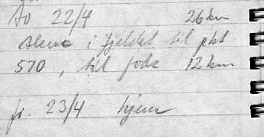 To 22/4 26 km
i fjeldet til pkt
570, til fods 12 km
fr. 23/4 hjem